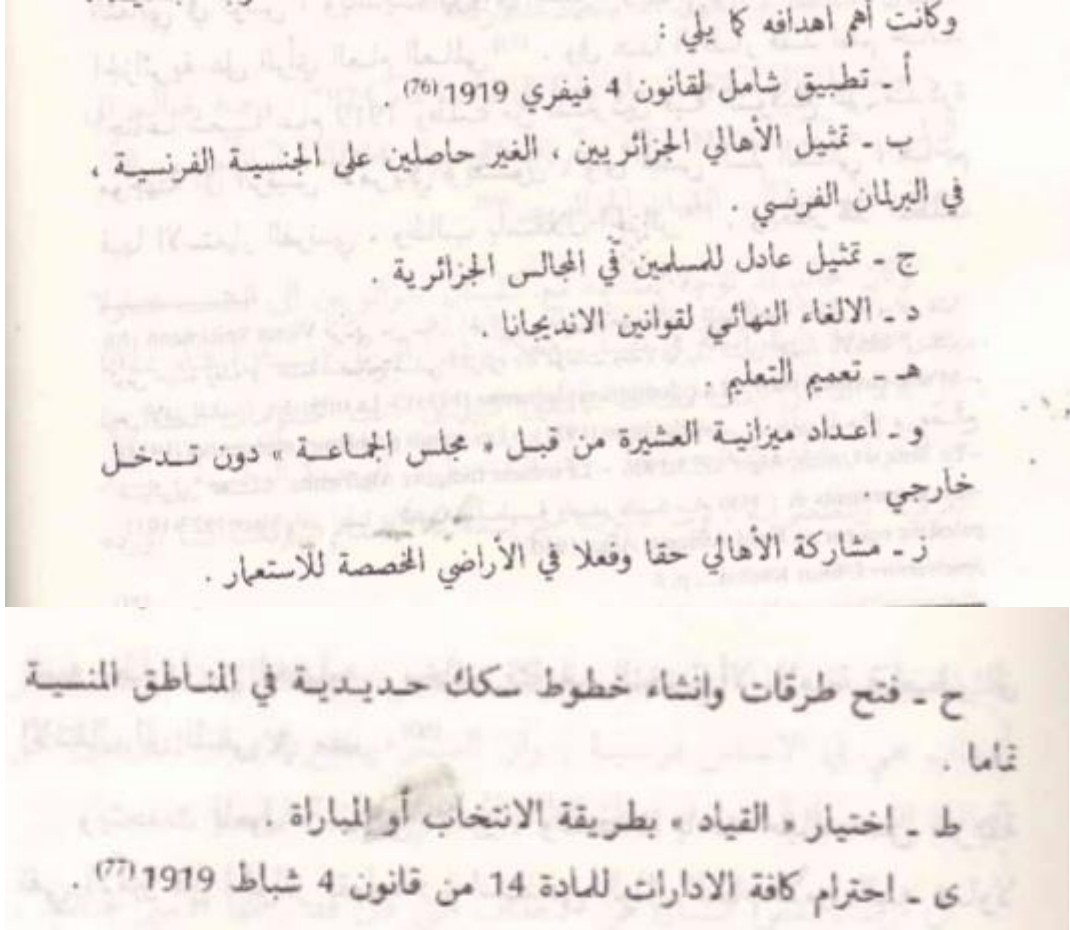 وكانت أهم اهدافه كما يلي :
أ ـ تطبيق شامل لقانون 4 فيفري 1919(76) .
ب ـ تمثيل الأهالي الجزائريين ، الغير حاصلين على الجنسية الفرنسية ،
في البرلمان الفرنسي .
ج ـ تمثيل عادل للمسلمين في المجالس الجزائرية .
د ـ الالغاء النهائي لقوانين الانديجانا .
هـ ـ تعميم التعليم .
و ـ اعداد ميزانية العشيرة من قبل « مجلس الجماعة » دون تدخل
خارجي .
ز ـ مشاركة الأهالي حقا وفعلا في الأراضي المخصصة للاستعمار .
ح ـ فتح طرقات وانشاء خطوط سكك حديدية في المناطق المنسية
تماما .
ط ـ اختيار « القياد » بطريقة الانتخاب أو المباراة .
ى ـ احترام كافة الادارات للمادة 14 من قانون 4 شباط 1919(77) .